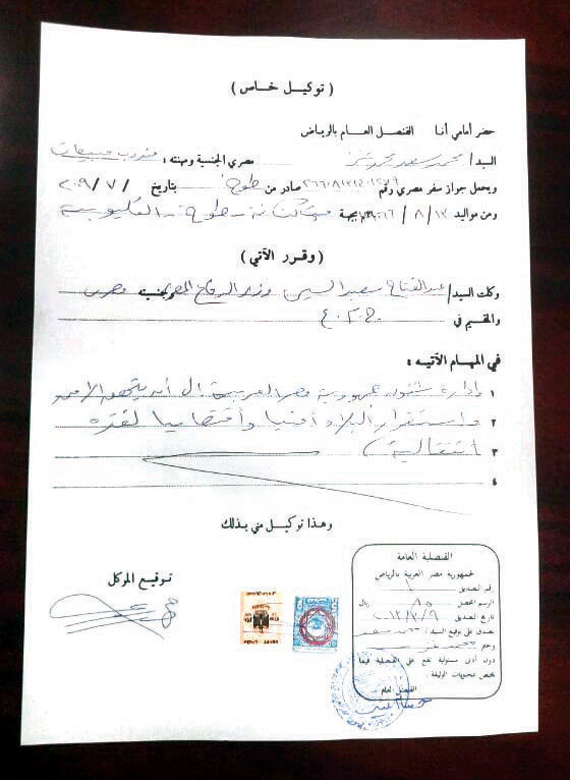 ( توكيل خاص )
حضر أمامي أنا القنصل العام بالرياض
السيد / محمد سعد محمد مصري الجنسية ومهنته : مندوب مبيعات
ويحمل جواز سفر مصري رقم صادر من طوخ بتاريخ / ٧ / ٢٠٠٩
ومن مواليد ١٣ / ٨ / بجهة طوخ - القليوبية
( وقرر الآتي )
وكلت السيد / عبد الفتاح سعيد السيسي وزير الدفاع المصري
والمقيم في ج.م.ع
في المهام الآتيه :
١ إدارة شئون جمهورية مصر العربية إلى أن يتم الأمن
٢ واستقرار البلاد أمنيا واقتصاديا لفترة
٣ انتقالية
٤
وهذا توكيل مني بذلك
توقيع الموكل
القنصلية العامة
لجمهورية مصر العربية بالرياض
رقم التصديق
الرسم المحصل ٨٥ ريال
تاريخ التصديق
تصدق على توقيع السيد / محمد سعد
دون أدنى مسئولية تقع على القنصلية فيما
يختص بمحتويات الوثيقة .
القنصل العام